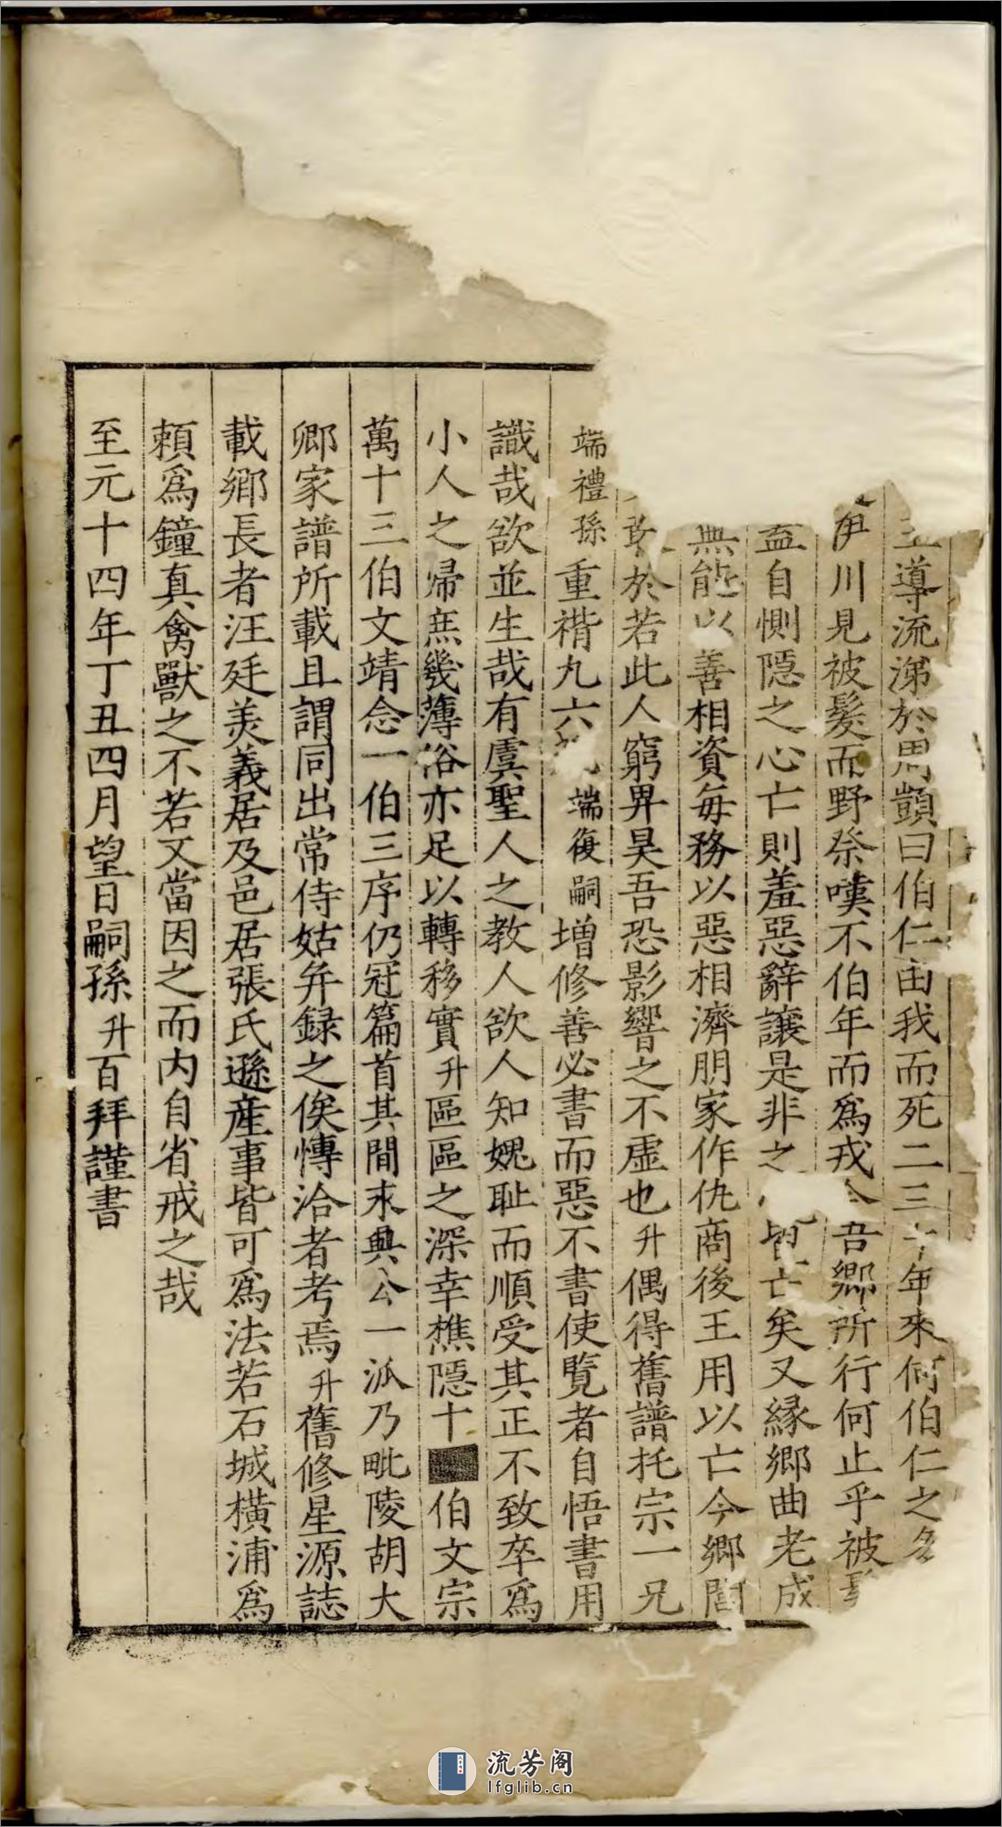 王導流涕於周顗曰伯仁由我而死二三十年來何伯仁之多
伊川見被髮而野祭嘆不伯年而爲戎今吾鄉所行何止乎被髮
益自惻隱之心亡則羞惡辭讓是非之心皆亡矣又縁鄉曲老成
無能以善相資每務以惡相濟朋家作仇商後王用以亡今鄉閭
於若此人窮畀昊吾恐影響之不虛也升偶得舊譜托宗一兄
端禮孫重楷九六端復嗣增修善必書而惡不書使覽者自悟書用
識哉欲並生哉有虞聖人之教人欲人知媿耻而順受其正不致卒爲
小人之歸庶幾薄俗亦足以轉移實升區區之深幸樵隱十伯文宗
萬十三伯文靖念一伯三序仍冠篇首其間末興公一派乃毗陵胡大
卿家譜所載且謂同出常侍姑弁録之俟博洽者考焉升舊修星源誌
載鄉長者汪廷美義居及邑居張氏遜産事皆可爲法若石城橫浦爲
頼爲鐘真禽獸之不若又當因之而内自省戒之哉
至元十四年丁丑四月望日嗣孫升百拜謹書
流芳阁
lfglib.cn